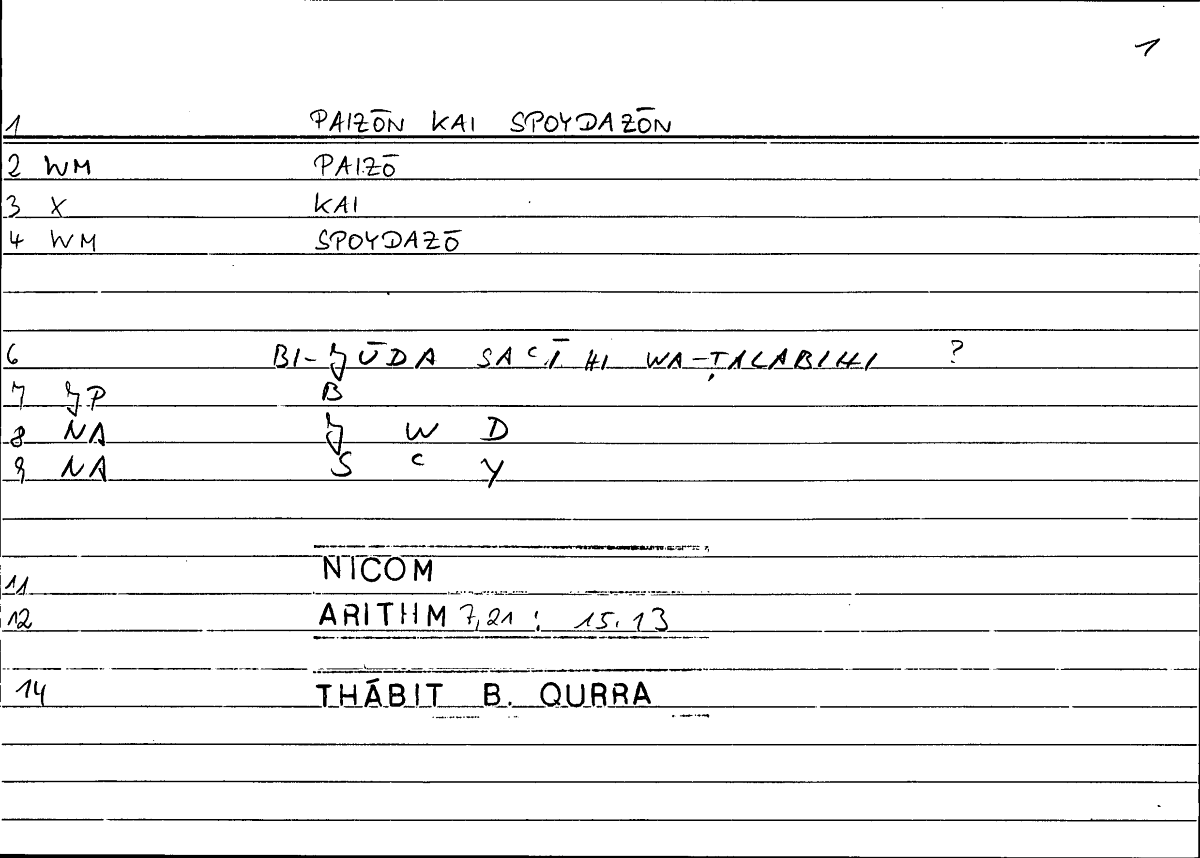 1
1 PAIZŌN KAI SPOYDAZŌN
2 WM PAIZŌ
3 X KAI
4 WM SPOYDAZŌ
6 BI-ǦŪDA SAʿĪHI WA-ṬALABIHI ?
7 ǦP B
8 NA Ǧ W D
9 NA S ʿ Y
11 NICOM
12 ARITHM 7,21 : 15.13
14 THĀBIT B. QURRA